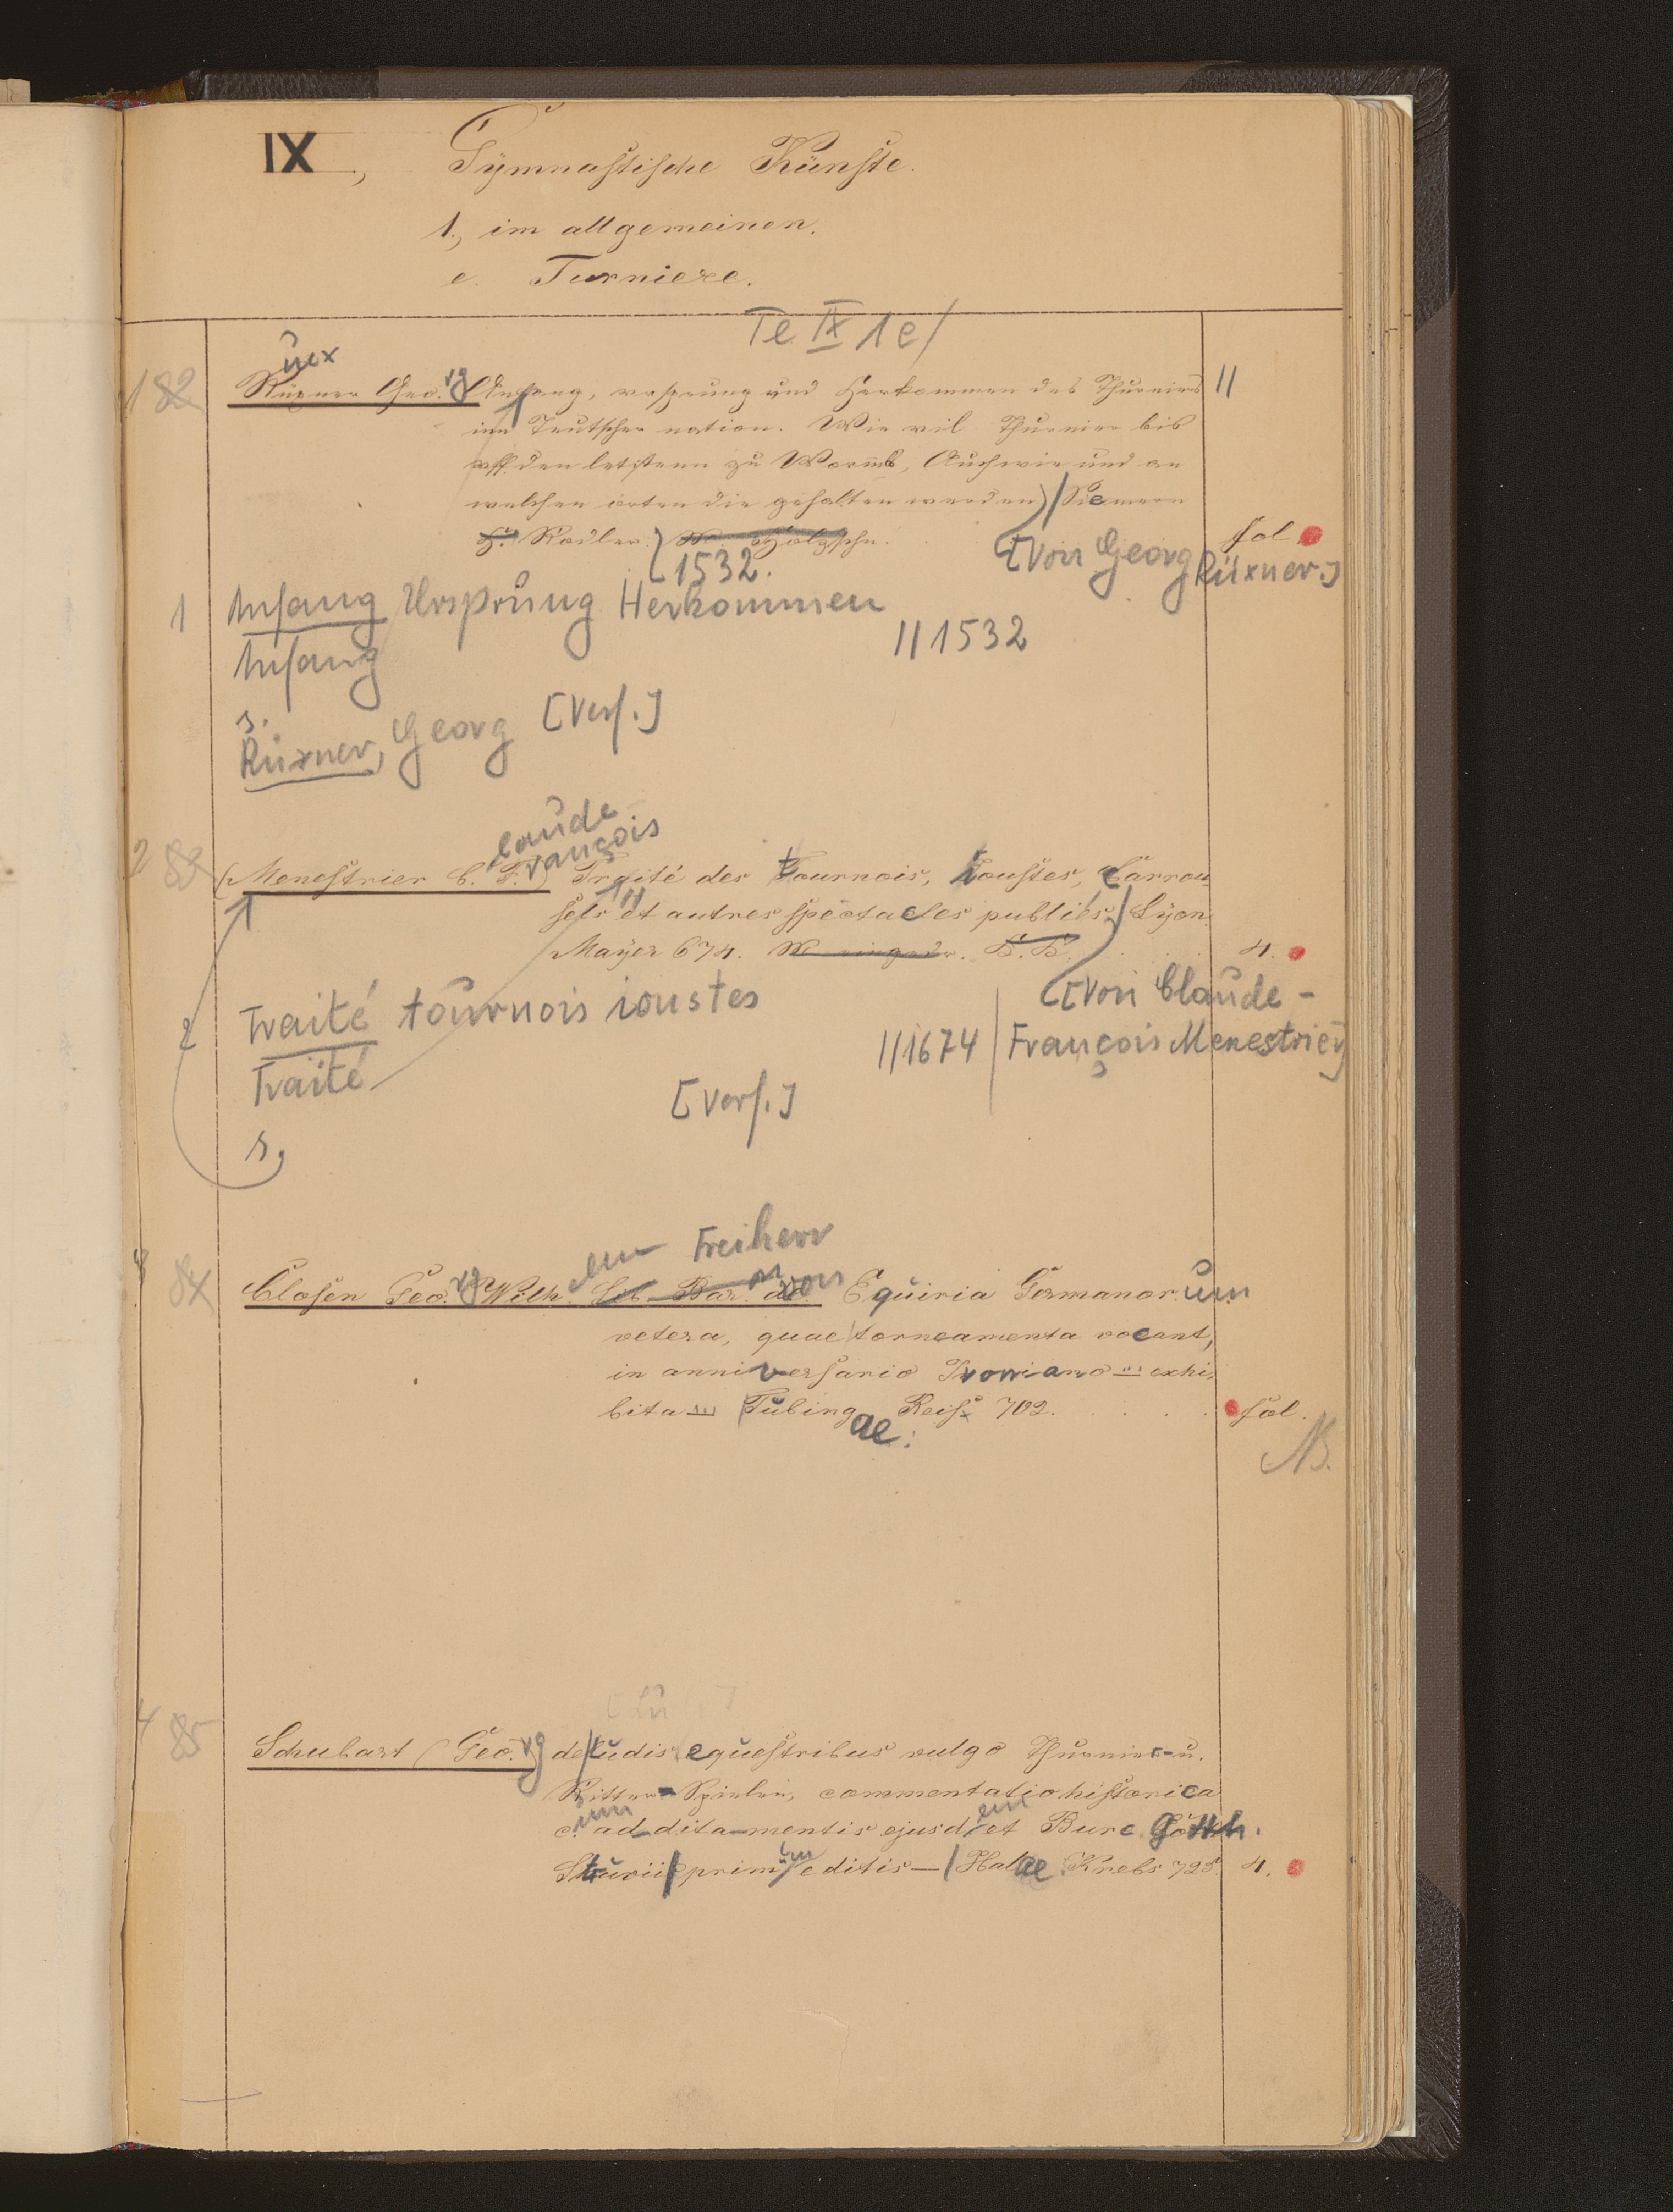 IX, Gymnastische Künste.
1., im allgemeinen.
e. Turniere.
Te IX 1e/
üx
1 82 Rüxner Geo. rg Anfang, ursprung und Herkommen des Thurniers 11
inn Teutscher nation. Wie vil Thurnier bis
uff den letztenn zu Wormbs, Auch wie und an
welchen örten die gehalten werden / Siemern
H. Rodler. fol
1532. [von Georg Rüxner.]
1 Anfang Ursprung Herkommen
// 1532
Anfang
s.
Rüxner, Georg [Verf.]
laude
rançois
2 83 (Menestrier C. F.) Traité des Tournois, Ioustes, Carrou
sels et autres spectacles publics / Lyon
Mayer 674. B. B. 4.
[von Claude-
2 Traité tournois ioustes
// 1674 François Menestrier]
Traité
[Verf.]
s,
elm Freiherr
84 Closen Geo. rg Wilh. Lib. Bar. von Equiria Germanor. um
vetera, quae torneamenta vocant,
in anniversario exhi-
bita Tubing ae: Reis 702. fol.
NB.
4 85 Schubart (Geo. rg de ludis equestribus vulgo Thurnier- u.
Ritter-Spielen, commentatio historica
um em
c. additamentis ejusd. et Burc. Gotth.
um
Struvii prim editis — / Halae Krebs 725. 4.